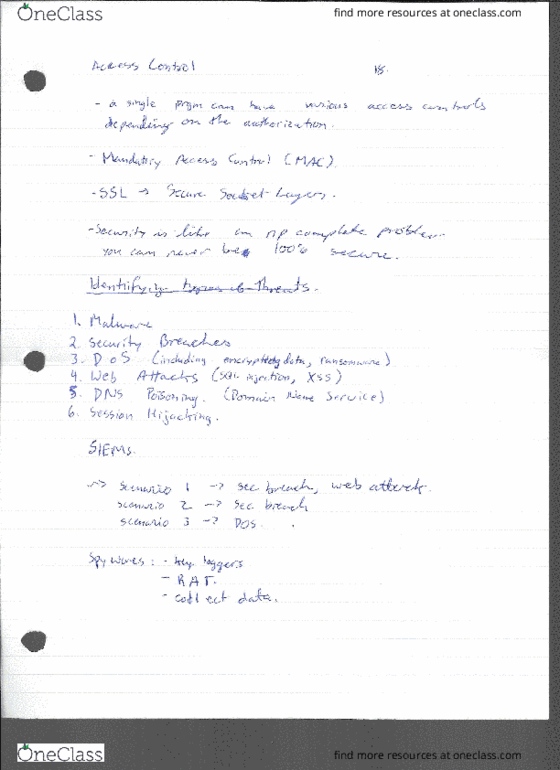 OneClass
find more resources at oneclass.com
Access Control
- a single prgm can have various access controls
depending on the authorization.
- Mandatory Access Control (MAC)
- SSL → Secure Socket Layers.
- Security is like an np complete problem
you can never be 100% secure.
Identifying types of Threats.
1. Malware
2. Security Breaches
3. DoS (including encrypting data, ransomware)
4. Web Attacks (SQL injection, XSS)
5. DNS Poisoning. (Domain Name Service)
6. Session Hijacking.
SIEMs
~> scenario 1 -> sec breach, web attack.
scenario 2 -> sec breach
scenario 3 -> DOS.
Spywares: - key loggers
- RAT.
- collect data.
OneClass
find more resources at oneclass.com